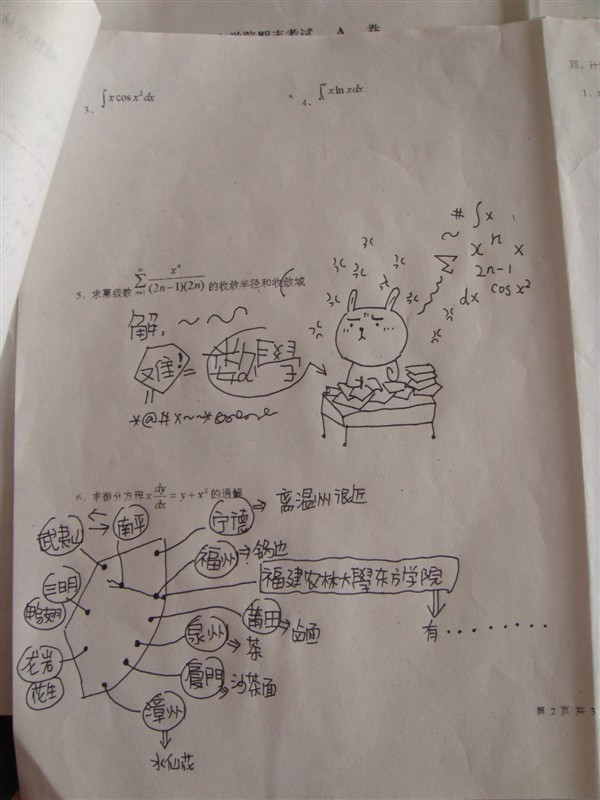 学院期末考试 A 卷
3、∫x cos x²dx
4、x ln xdx
5、求幂级数∑ xⁿ/(2n-1)(2n) 的收敛半径和收敛域
解:
难! = 數學
*@#x~~*
# ∫x
~ xⁿ x
∑ 2n-1
dx cos x²
6、求微分方程 x dy/dx = y + x² 的通解
武夷山
南平
宁德 ⇒ 离温州很近
福州 ⇒ 锅边
福建农林大學东方学院
有········
三明
鸭翅
莆田 ⇒ 卤面
泉州 ⇒ 茶
龙岩
花生
廈門 ⇒ 沙茶面
漳州
水仙花
四、计
1、
第 2 页 共 3